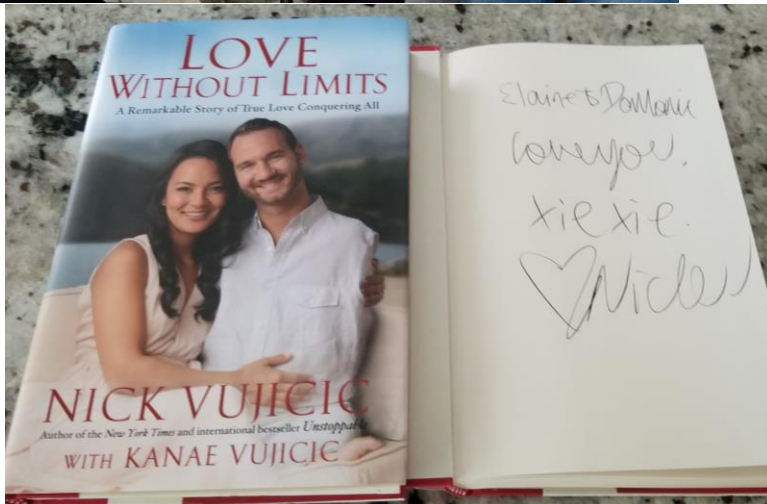 LOVE
WITHOUT LIMITS
A Remarkable Story of True Love Conquering All
NICK VUJICIC
Author of the New York Times and international bestseller Unstoppable
WITH KANAE VUJICIC
Elaine & Dominic
Love you.
xie xie.
Nick